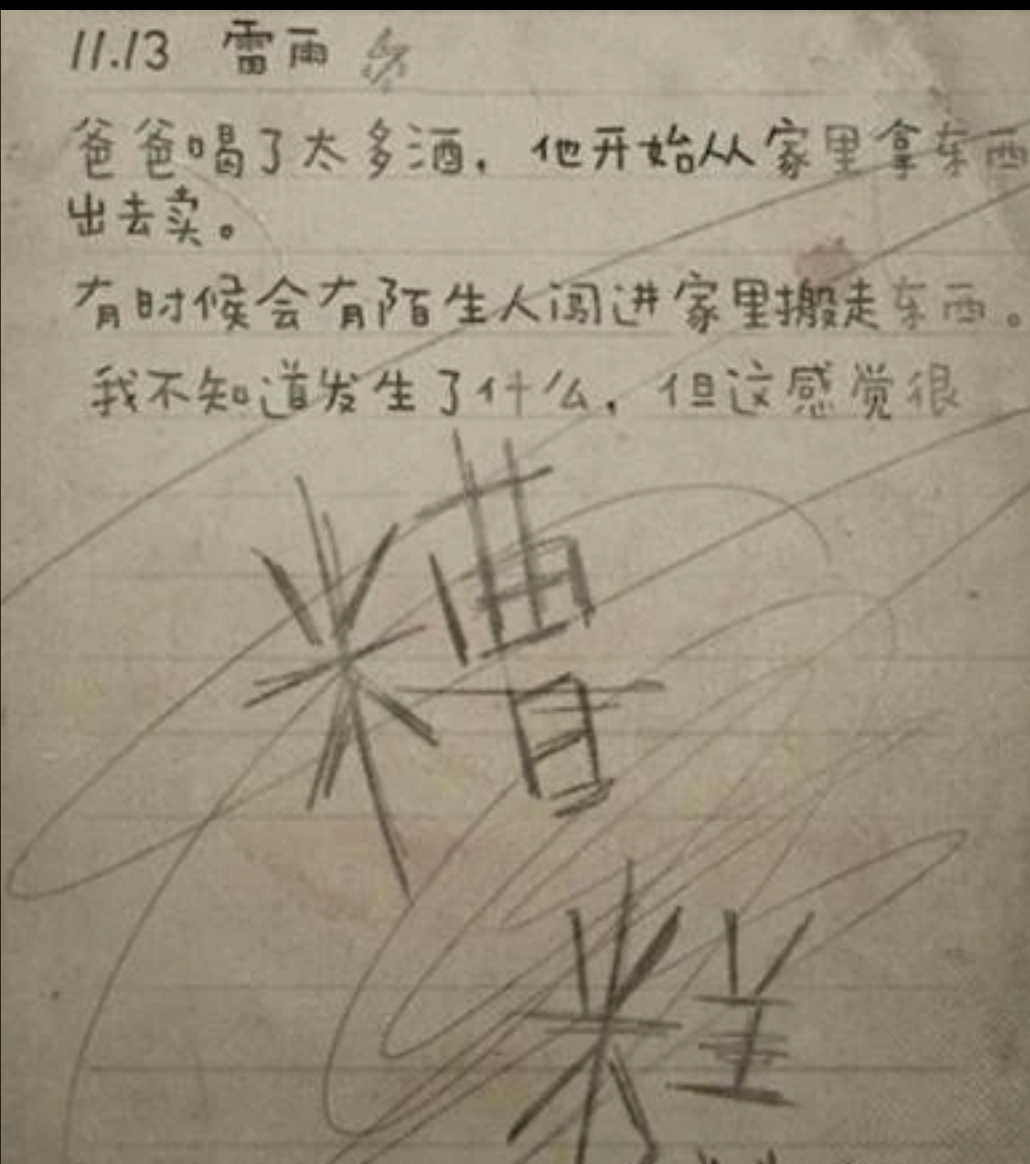 11.13 雷雨
爸爸喝了太多酒，他开始从家里拿东西
出去卖。
有时候会有陌生人闯进家里搬走东西。
我不知道发生了什么，但这感觉很
糟
糕